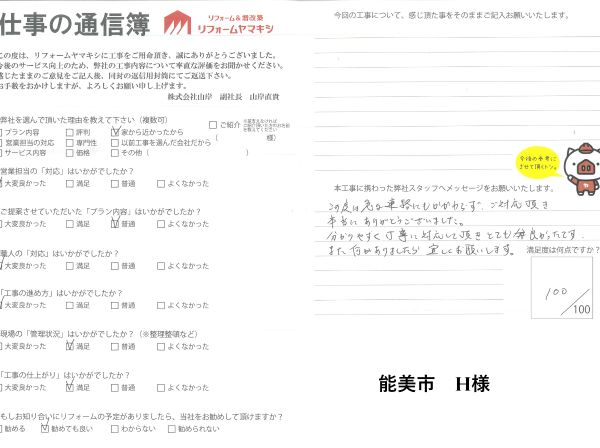 仕事の通信簿
リフォーム&増改築
リフォームヤマキシ
この度は、リフォームヤマキシに工事をご用命頂き、誠にありがとうございました。
今後のサービス向上のため、弊社の工事内容について率直な評価をお聞かせください。
感じたままのご意見をご記入後、同封の返信用封筒にてご返送下さい。
お手数をおかけしますが、よろしくお願い申し上げます。
株式会社山岸 副社長 山岸直貴
弊社を選んで頂いた理由を教えて下さい（複数可）
プラン内容 評判 家から近かったから ご紹介
営業担当の対応 専門性 以前工事を選んだ会社だから （ 様）
サービス内容 価格 その他（ ）
営業担当の「対応」はいかがでしたか？
大変良かった 満足 普通 よくなかった
ご提案させていただいた「プラン内容」はいかがでしたか？
大変良かった 満足 普通 よくなかった
職人の「対応」はいかがでしたか？
大変良かった 満足 普通 よくなかった
「工事の進め方」はいかがでしたか？
大変良かった 満足 普通 よくなかった
現場の「管理状況」はいかがでしたか？（※整理整頓など）
大変良かった 満足 普通 よくなかった
「工事の仕上がり」はいかがでしたか？
大変良かった 満足 普通 よくなかった
もしお知り合いにリフォームの予定がありましたら、当社をお勧めして頂けますか？
勧める 勧めても良い わからない 勧められない
今回の工事について、感じ頂た事をそのままご記入お願いいたします。
今後の参考に
させて頂くトン。
本工事に携わった弊社スタッフへメッセージをお願いいたします。
この度は急な連絡にもかかわらず、ご対応頂き
本当にありがとうございました。
分かりやすく丁寧に対応して頂きとても良かったです。
また何かありましたら宜しくお願いします。
満足度は何点ですか？
100
/100
能美市 H様